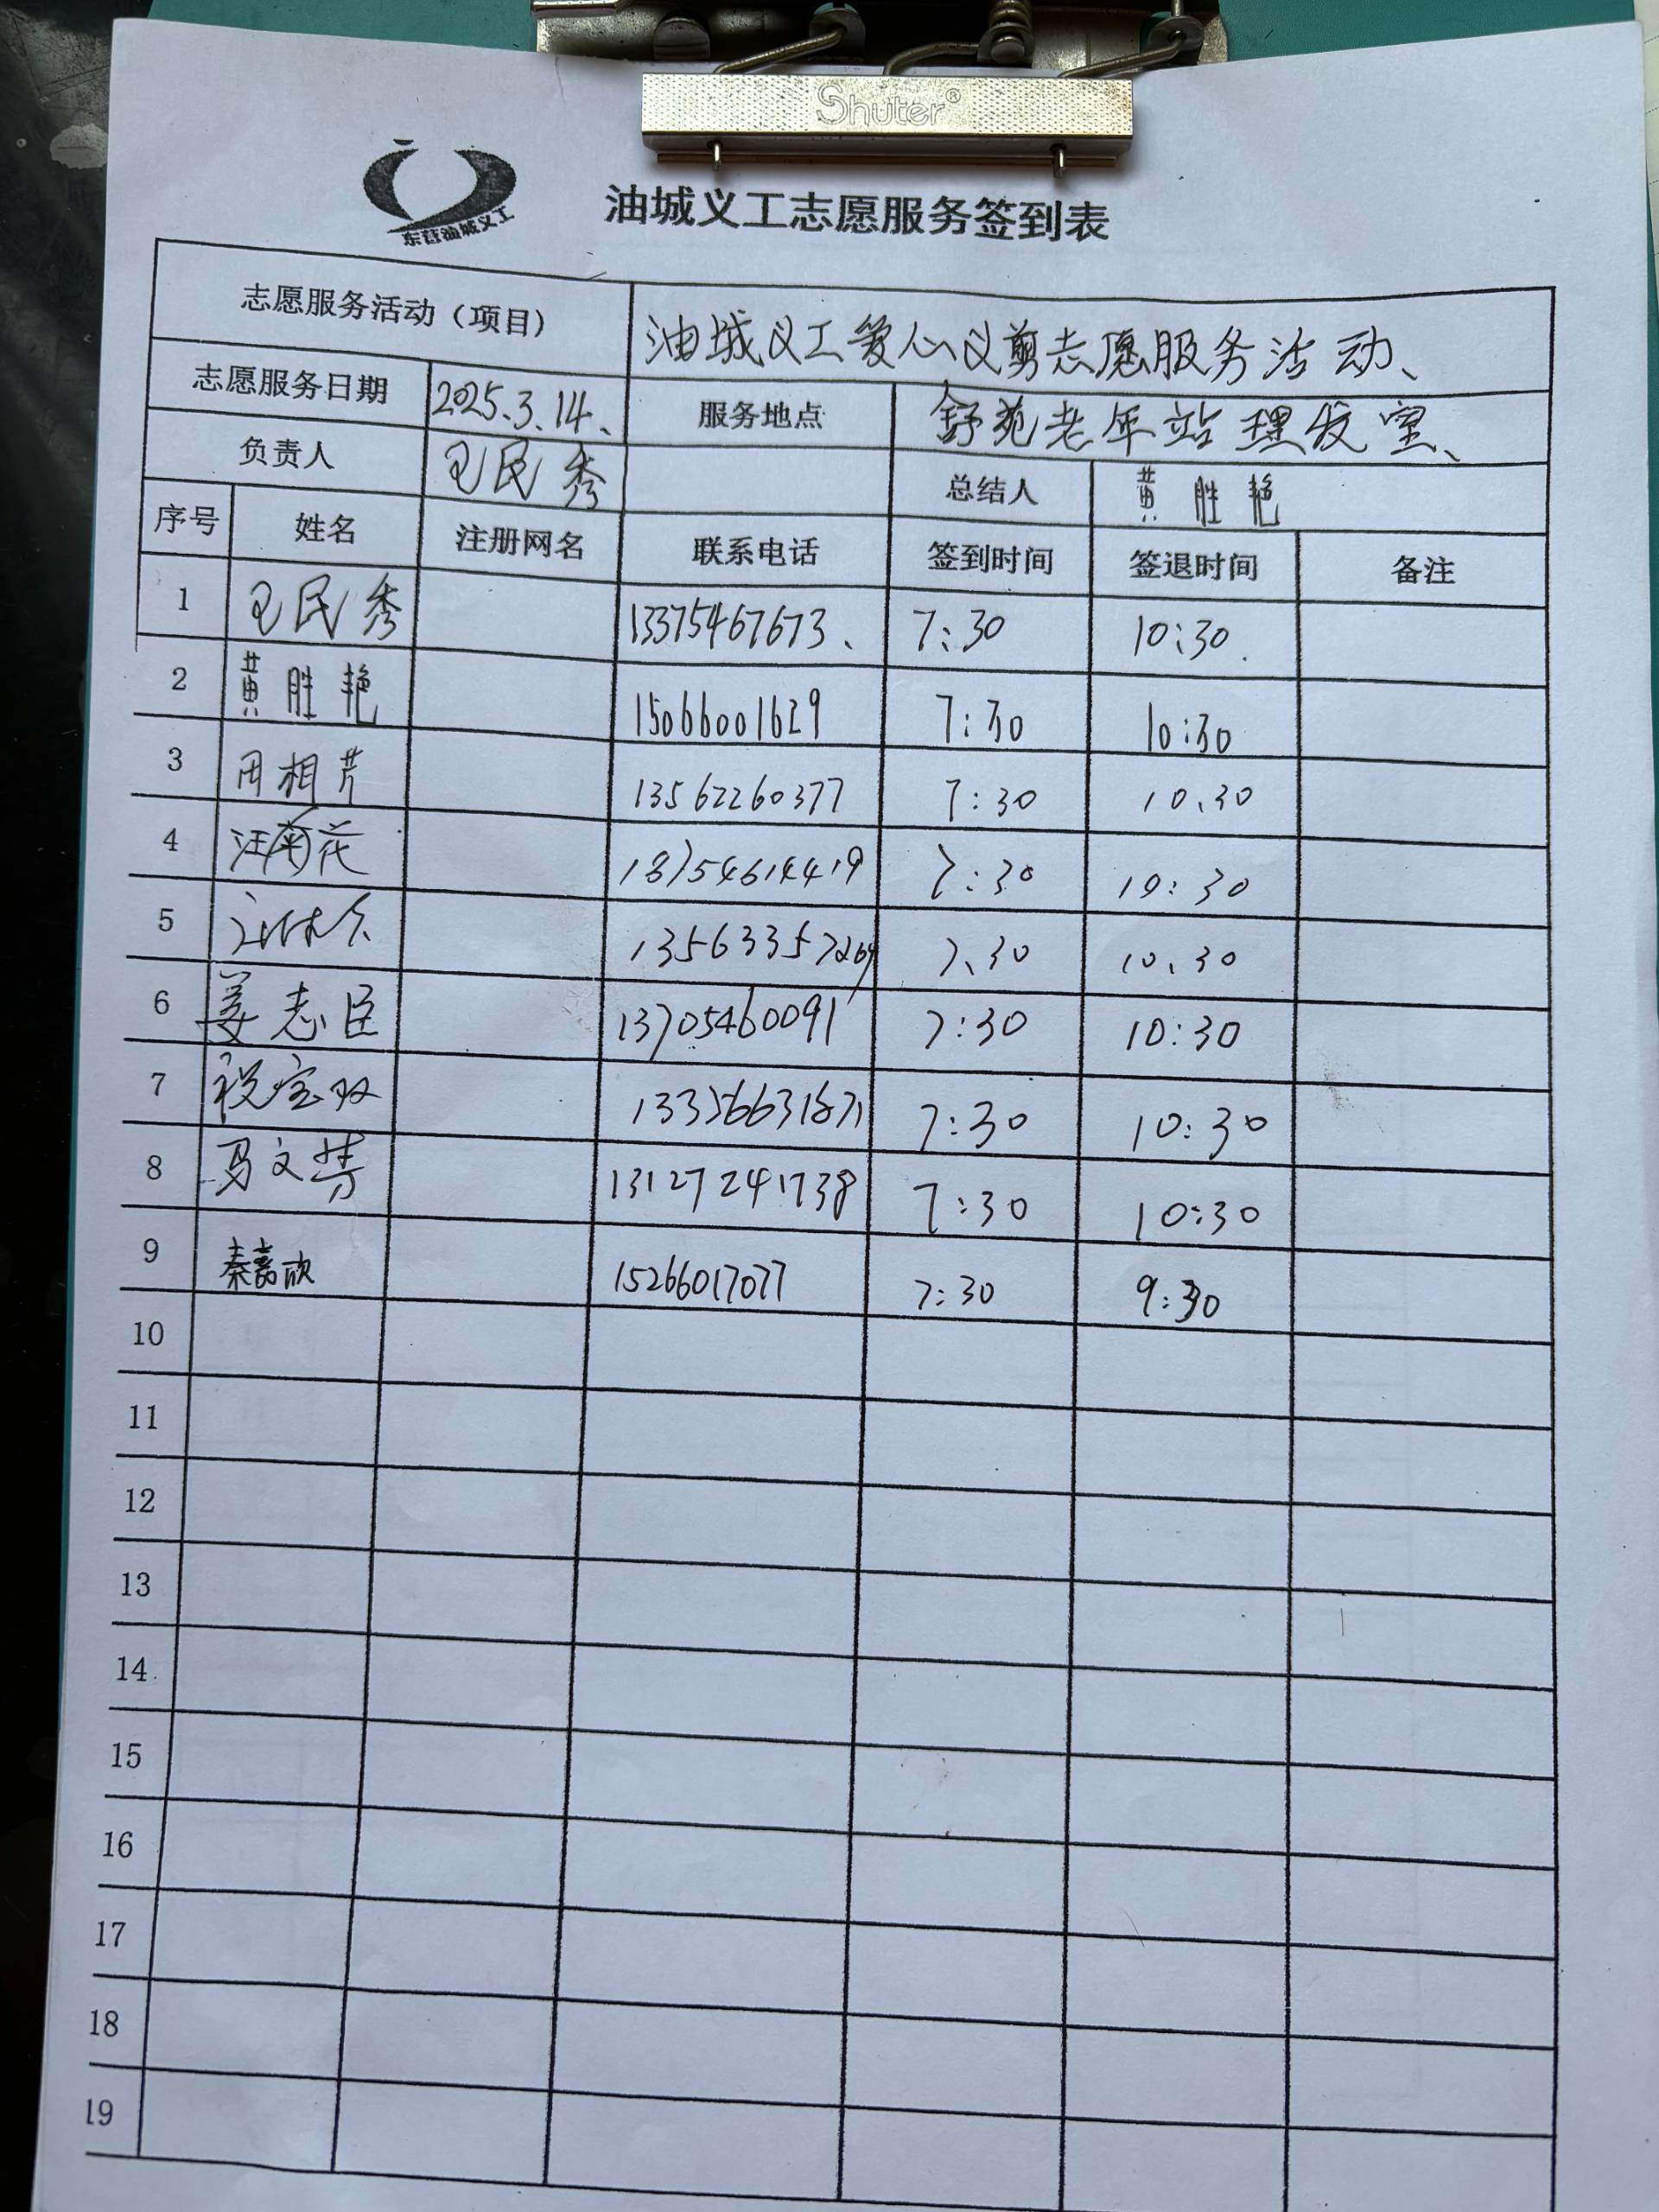 Shuter®
东营油城义工
油城义工志愿服务签到表
志愿服务活动（项目） 油城义工爱心义剪志愿服务活动、
志愿服务日期 2025.3.14、 服务地点 舒苑老年站理发室、
负责人 卫民秀 总结人 黄胜艳
序号 姓名 注册网名 联系电话 签到时间 签退时间 备注
1 卫民秀 13375467673、 7:30 10:30.
2 黄胜艳 15066001629 7:30 10:30
3 周相芹 13562260377 7:30 10.30
4 汪南花 18754614419 7:30 10:30
5 7.30 10.30
6 姜志臣 13705460091 7:30 10:30
7 祝宝双 7:30 10:30
8 马文芳 13127241738 7:30 10:30
9 秦嘉欣 15266017077 7:30 9:30
10
11
12
13
14
15
16
17
18
19